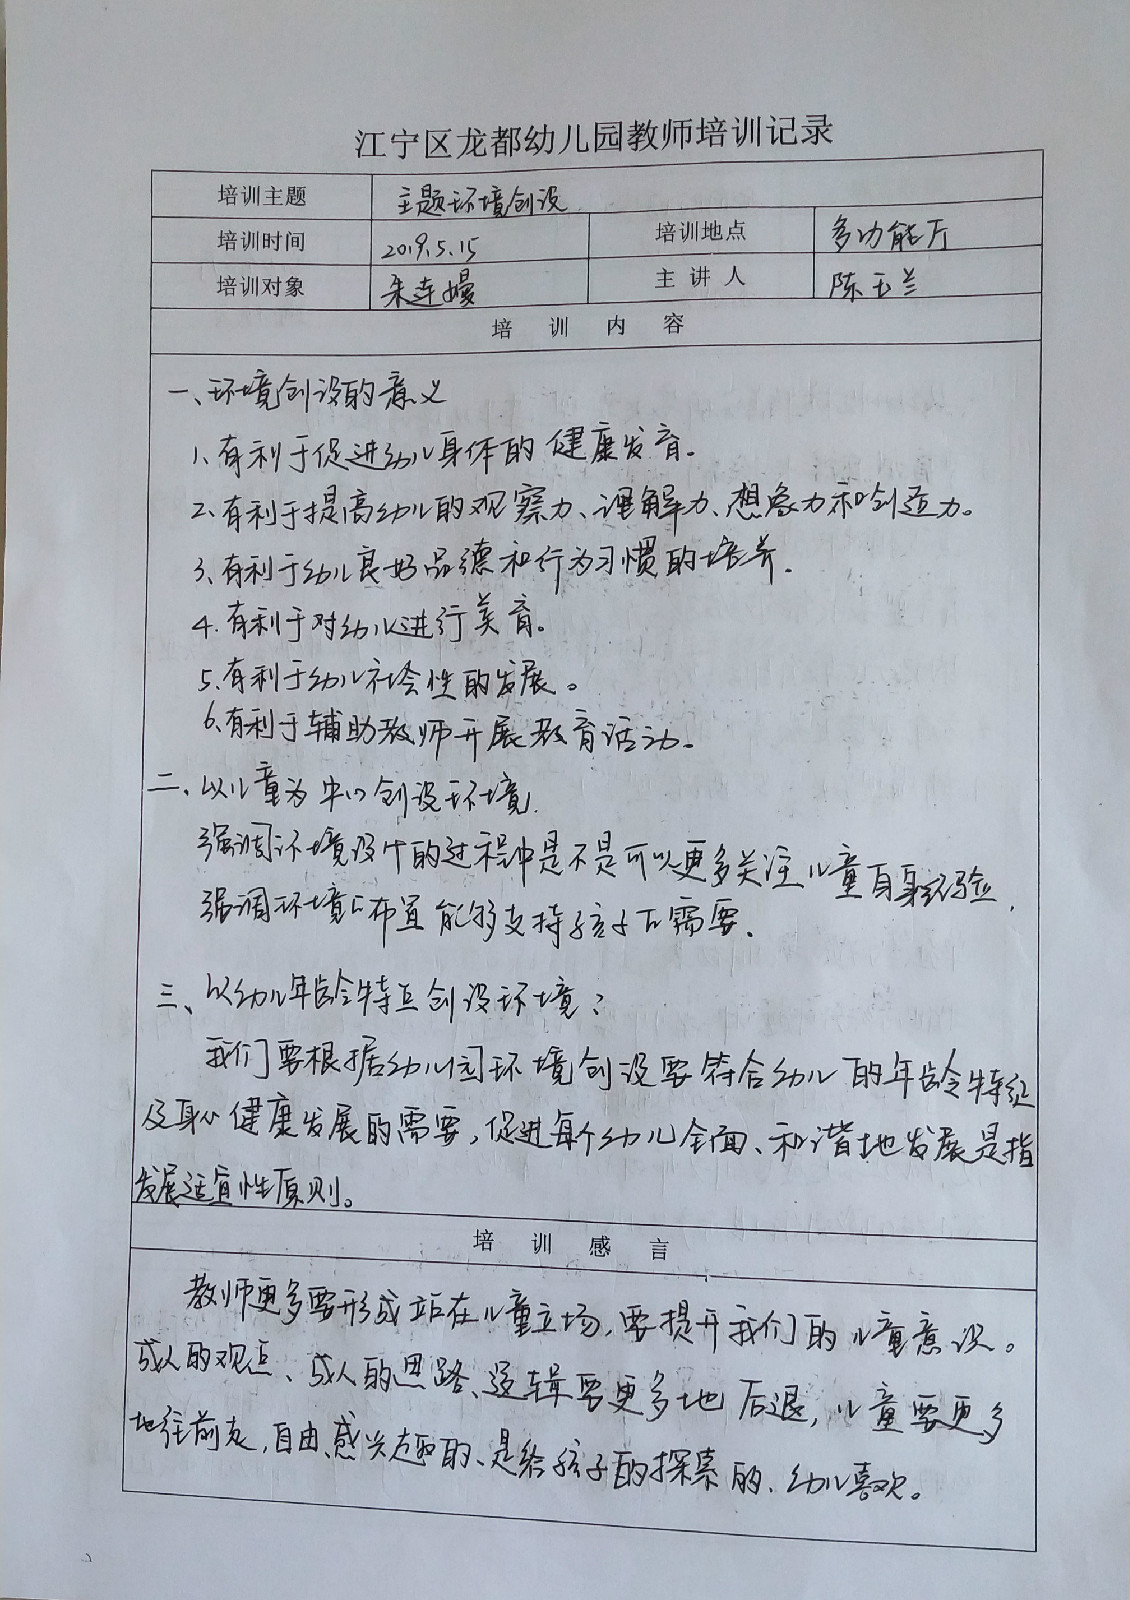 江宁区龙都幼儿园教师培训记录
培训主题 主题环境创设
培训时间 2019.5.15 培训地点 多功能厅
培训对象 朱连嫚 主讲人 陈玉兰
培训内容
一、环境创设的意义
1、有利于促进幼儿身体的健康发育。
2、有利于提高幼儿的观察力、理解力、想象力和创造力。
3、有利于幼儿良好品德和行为习惯的培养.
4.有利于对幼儿进行美育。
5、有利于幼儿社会性的发展。
6、有利于辅助教师开展教育活动。
二、以儿童为中心创设环境.
强调环境设计的过程中是不是可以更多关注儿童自身经验,
强调环境的布置能够支持孩子的需要.
三、以幼儿年龄特点创设环境:
我们要根据幼儿园环境创设要符合幼儿的年龄特征
及身心健康发展的需要,促进每个幼儿全面、和谐地发展是指
发展适宜性原则。
培训感言
教师更多要形成站在儿童立场,要提升我们的儿童意识。
成人的观点、成人的思路、逻辑要更多地后退,儿童要更多
地往前走,自由、感兴趣的、是给孩子的探索的、幼儿喜欢。